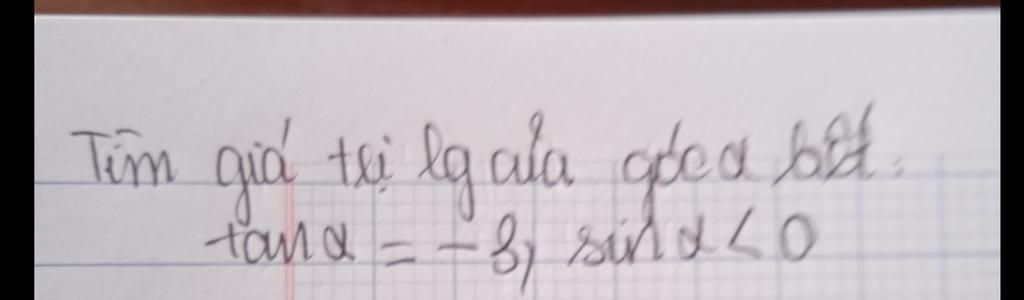 Tìm giá trị lg của góc α bết.
tanα = -3, sinα < 0